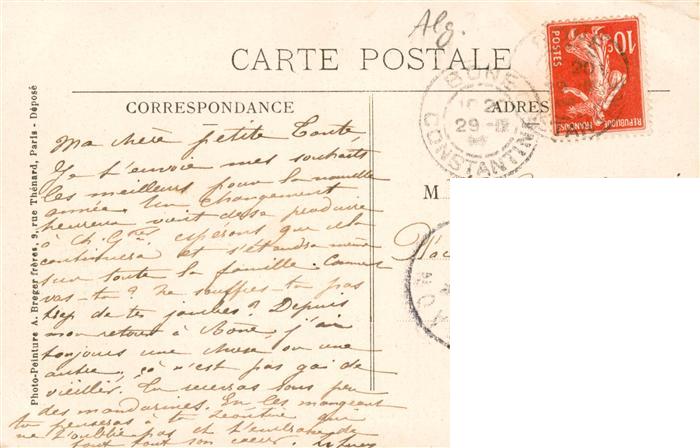 Alg.
CARTE POSTALE
CORRESPONDANCE
ADRES
BÔNE
29
CONSTANTINE
10c
POSTES
REPUBLIQUE FRANÇAISE
M
Photo-Peinture A. Breger frères, 9, rue Thénard, Paris - Déposé
Ma chère petite Tante,
Je t'envoie mes souhaits
les meilleurs pour la nouvelle
année. Un changement
heureux vient de se produire
à Ch. espérons que cela
continuera et s'étendra même
sur toute la famille. Comment
vas-tu? ne souffres-tu pas
trop de tes jambes? Depuis
mon retour à Bône, j'ai
toujours une chose ou une
autre, ça n'est pas gai de
vieillir. Tu recevras sous peu
des mandarines. En les mangeant
tu penseras à ta qui
ne t'oublie pas et t'embrasse de
tout son cœur.